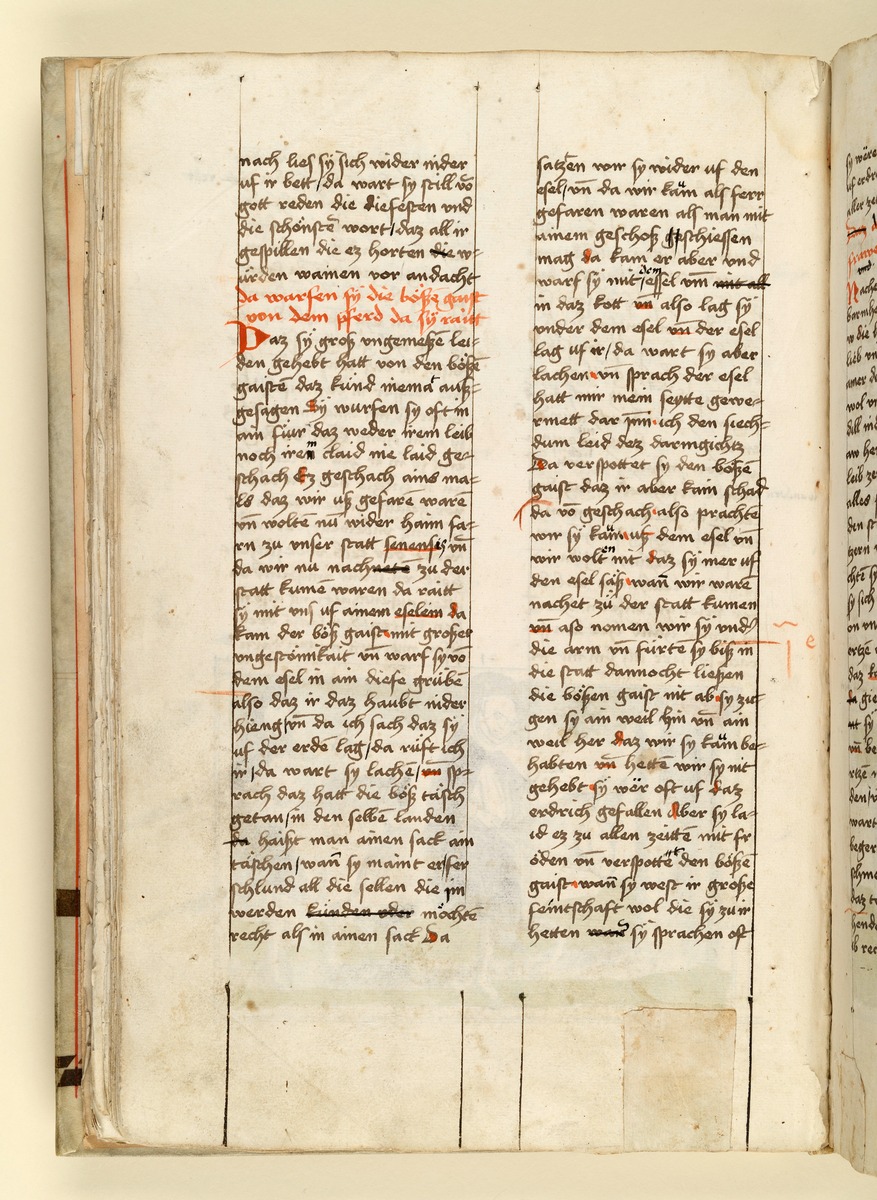 nach lies sÿ sich wider nider
uf ir bett / da wart sy still vō
gott reden die diefesten vnd
die schönstē wort / daz all ir
gespillen die ez horten die w-
urden wainen vor andacht
da warfen sÿ die bößē gaist
von dem pferd da sÿ raitt
Daz sÿ groß vngemeße lei-
den gehebt hatt von den bößē
gaistē daz kund niemāt auß-
gesagen Sÿ wurfen sy oft in
ain fiur daz weder irem leib
noch irem claid nie laid ge-
schach Ez geschach ains ma-
ls daz wir uß gefarē warē
vn̄ wolten nū wider haim fa-
rn zu vnser statt senensis vn̄
da wir nu nachnetē zu der
statt kumen waren da raitt
sy mit vns uf ainem eselein da
kam der böß gaist mit großer
vngestömikait vn̄ warf sy vō
dem esel in ain diefe grübē
also daz ir daz haubt nider
hieng / vn̄ da ich sach daz sÿ
uf der erdē lag / da rüft ich
ir / da wart sy lachē / vn̄ sp-
rach daz hatt die böß täsch
getan / in den selbē landen
da haißt man ainen sack ain
täschen / wan̄ sy maint er
schlund all die sellen die im
werden kunden oder möchtē
recht als in ainen sack Da
satzen wir sy wider uf den
esel / vn̄ da wir kamen als ferr
gefaren waren als man mit
ainem geschoß schiessen
mag da kam er aber vnd
warf sy mit dem essel vm̄ mit all
in daz kott vn̄ also lag sÿ
vnder dem esel vn̄ der esel
lag uf ir / da wart sy aber
lachen vn̄ sprach der esel
hatt mir mein seytte gewe-
rmett dar jnn ich den siech-
dum leid dez darmgichtz
Da verspottet sy den bößē
gaist daz ir aber kain schad
da vō geschach also prachtē
wir sy kaum uß dem esel vn̄
wir woltē nit daz sÿ mer uf
den esel säß wan̄ wir warē
nachet zü der statt kumen
vn̄ aso nomen wir sÿ vnder
die arm vn̄ fürte sy biß in
die statt dannocht ließen
die bößen gaist nit ab sy zu-
gen sy ain weil hin vn̄ ain
weil her daz wir sy kaum be-
habten vn̄ hetten wir sy nit
gehebt sÿ wër oft uf daz
erdrich gefallen Aber sy la-
id ez zu allen zeittē mit fr
öden vn̄ verspottet den bößē
gaist wan̄ sy west ir große
feintschaft wol die sy zu ir
hetten wan̄ sÿ sprachen oft